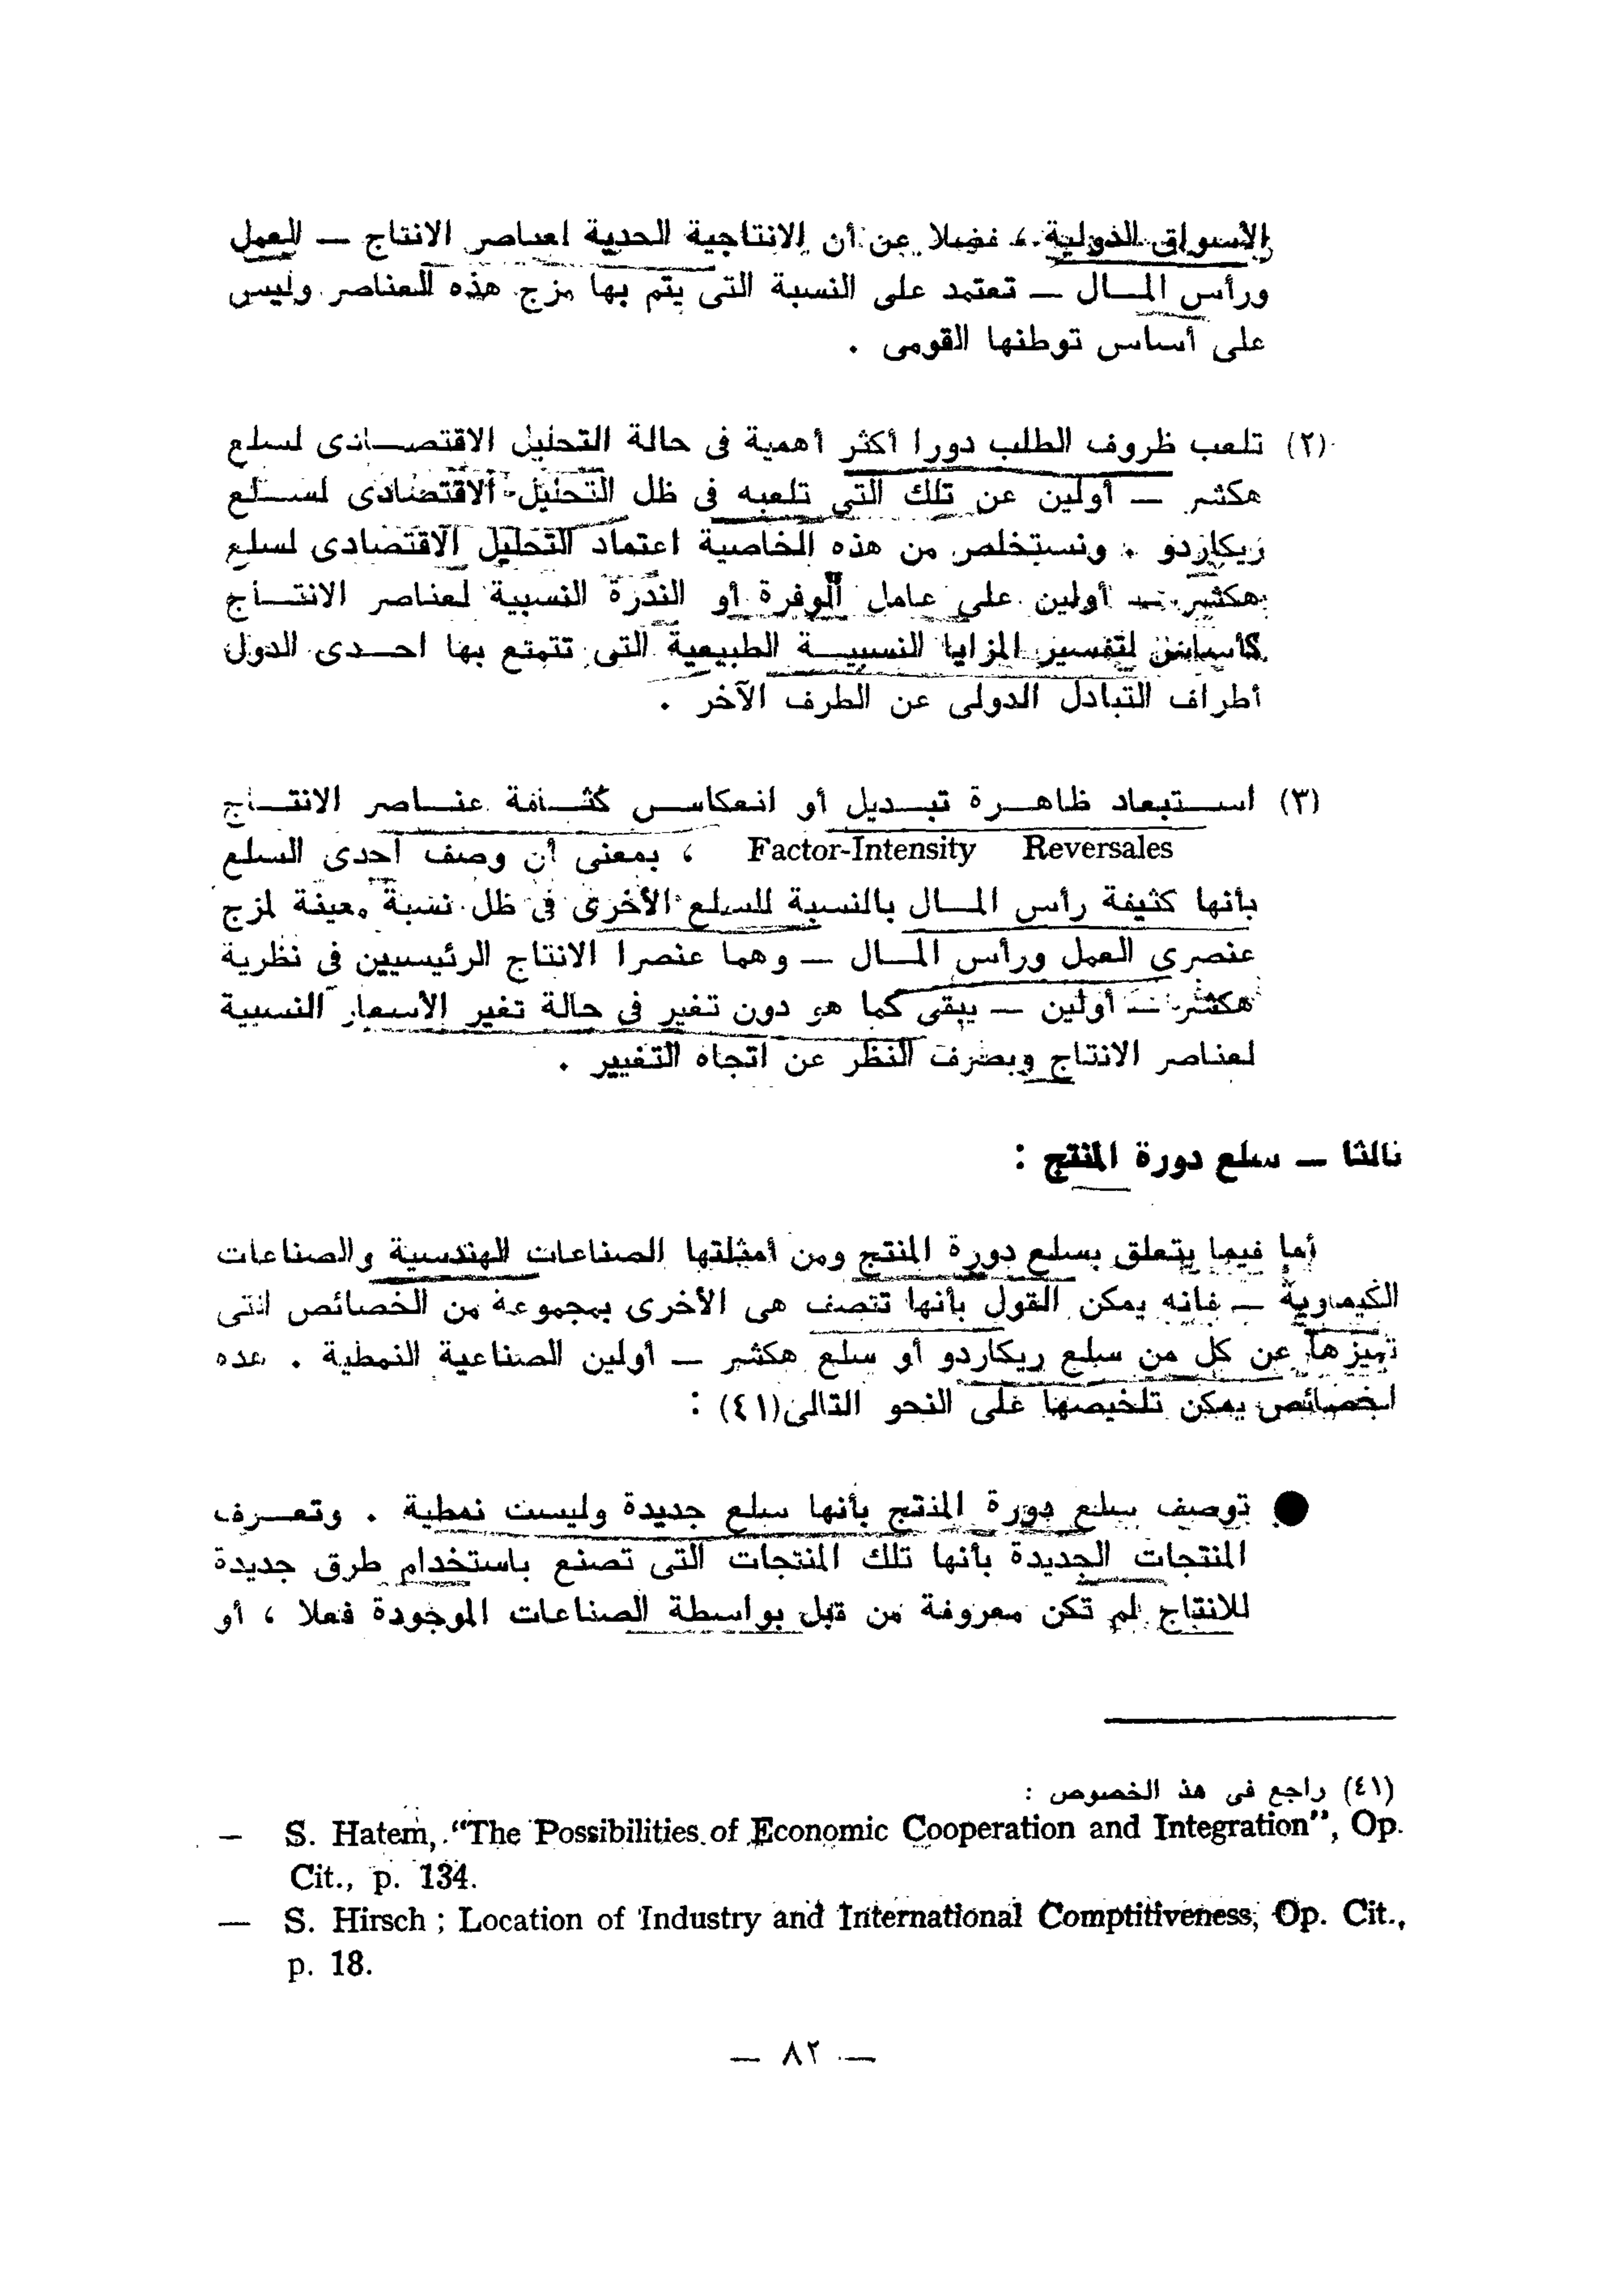 الأسواق الدولية ، فضلا عن أن الانتاجية الحدية لعناصر الانتاج — العمل
ورأس المـــال — تعتمد على النسبة التى يتم بها مزج هذه العناصر وليس
على أساس توطنها القومى .
(٢) تلعب ظروف الطلب دورا أكثر أهمية فى حالة التحليل الاقتصـــادى لسلع
هكشر — أولين عن تلك التى تلعبه فى ظل التحليل الاقتصادى لســـلع
ريكاردو . ونستخلص من هذه الخاصية اعتماد التحليل الاقتصادى لسلع
هكشر — أولين على عامل الوفرة أو الندرة النسبية لعناصر الانتـــاج
كأساس لتفسير المزايا النسبيـــة الطبيعية التى تتمتع بها احـــدى الدول
أطراف التبادل الدولى عن الطرف الآخر .
(٣) استبعاد ظاهرة تبديل أو انعكاس كثافة عناصر الانتاج
Factor-Intensity Reversales ، بمعنى أن وصف احدى السلع
بأنها كثيفة رأس المـــال بالنسبة للسلع الأخرى فى ظل نسبة معينة لمزج
عنصرى العمل ورأس المـــال — وهما عنصرا الانتاج الرئيسيين فى نظرية
هكشر — أولين — يبقى كما هو دون تغير فى حالة تغير الأسعار النسبية
لعناصر الانتاج وبصرف النظر عن اتجاه التغيير .
ثالثا — سلع دورة المنتج :
أما فيما يتعلق بسلع دورة المنتج ومن أمثلتها الصناعات الهندسية والصناعات
الكيماوية — فانه يمكن القول بأنها تتصف هى الأخرى بمجموعة من الخصائص التى
تميزها عن كل من سلع ريكاردو أو سلع هكشر — أولين الصناعية النمطية . هذه
الخصائص يمكن تلخيصها على النحو التالى(٤١) :
● توصف سلع دورة المنتج بأنها سلع جديدة وليست نمطية . وتعـــرف
المنتجات الجديدة بأنها تلك المنتجات التى تصنع باستخدام طرق جديدة
للانتاج لم تكن معروفة من قبل بواسطة الصناعات الموجودة فعلا ، أو
(٤١) راجع فى هذ الخصوص :
— S. Hatem, "The Possibilities of Economic Cooperation and Integration", Op.
Cit., p. 134.
— S. Hirsch ; Location of Industry and International Comptitiveness, Op. Cit.,
p. 18.
— ٨٢ —